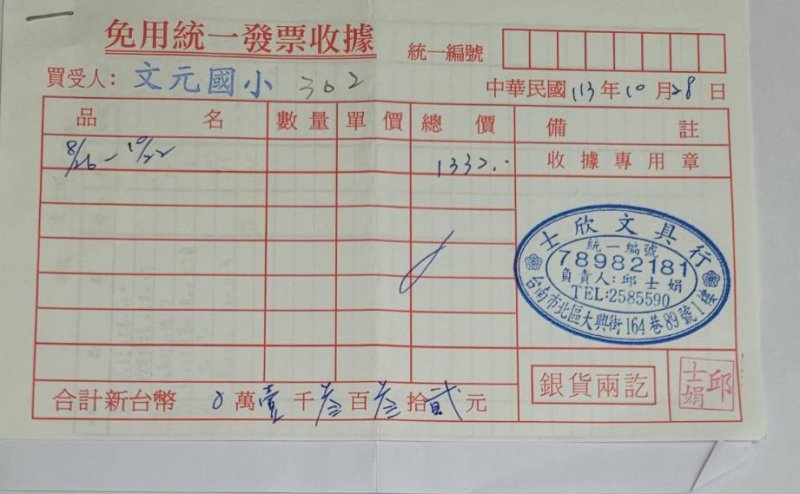 免用統一發票收據
統一編號
買受人: 文元國小 302
中華民國 113 年 10 月 28 日
品名 數量 單價 總價 備註
8/26 - 10/22 1332.-
收據專用章
士欣文具行
統一編號
78982181
負責人:邱士娟
TEL:2585590
台南市北區大興街164巷89號1樓
銀貨兩訖
邱士娟
合計新台幣 0 萬 壹 千 叁 百 叁 拾 貳 元